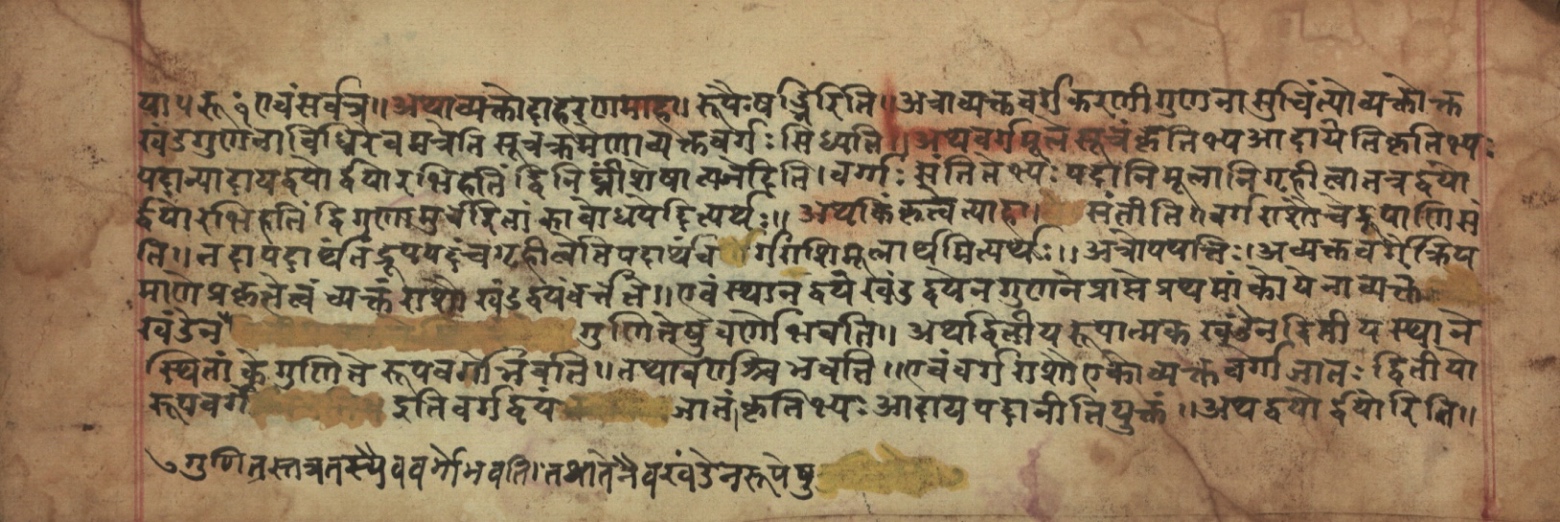 या ५ रू १ एवं सर्वत्र॥ अथाव्यक्तोदाहरणमाह॥ रूपैः षड्भिरिति॥ अत्राव्यक्तवर्गकरणी गुणना सुचिंत्यो व्यक्तोक्त
खंडगुणनाविधिरेवमत्रेति सूत्रक्रमेणाव्यक्तवर्गः सिध्यति॥ अथ वर्गमूलसूत्रं कृतिभ्य आदायेति कृतिभ्यः
पदान्यादाय द्वयोर्द्वयोरभिहतिं द्विनिघ्नीं शेषात्यजेदिति। वर्गाः संति तेभ्यः पदानि मूलानि गृहीत्वा तत्र द्वयो
र्द्वयोरभिहतिं द्विगुणा शोधयेदित्यर्थः॥ अथ किं कृत्वेत्याह। संतीति वर्गराशौ चेद्रूपाणि सं
ति॥ तदा पदार्थं रूपपदं च गृहीत्वेति पदार्थं वर्गराशिमूलार्थमित्यर्थः॥ अत्रोपपत्तिः। अव्यक्तवर्गे क्रिय
माणे प्रकृते त्वं व्यक्त राशौ खंडद्वयं वर्तते॥ एवं स्थानद्वये खंडद्वयेन गुणने प्राप्ते प्रथमांको येनाव्यक्ते
खंडेन गुणितेषु वर्णो भवति॥ अथ द्वितीयरूपात्मकखंडेन द्वितीयस्थाने
स्थितांके गुणिते रूपवर्गो भवति॥ तथा भवति॥ एवं वर्गराशौ एको व्यक्तवर्गो जातः द्वितीयो
रूपवर्गो इति वर्गद्वयं जातं कृतिभ्यः आदाय पदानीति युक्तं॥ अथ द्वयोर्द्वयोरिति॥
गुणितस्तत्र तस्यैव वर्गो भवति। तथा तेनैव खंडेन रूपेषु